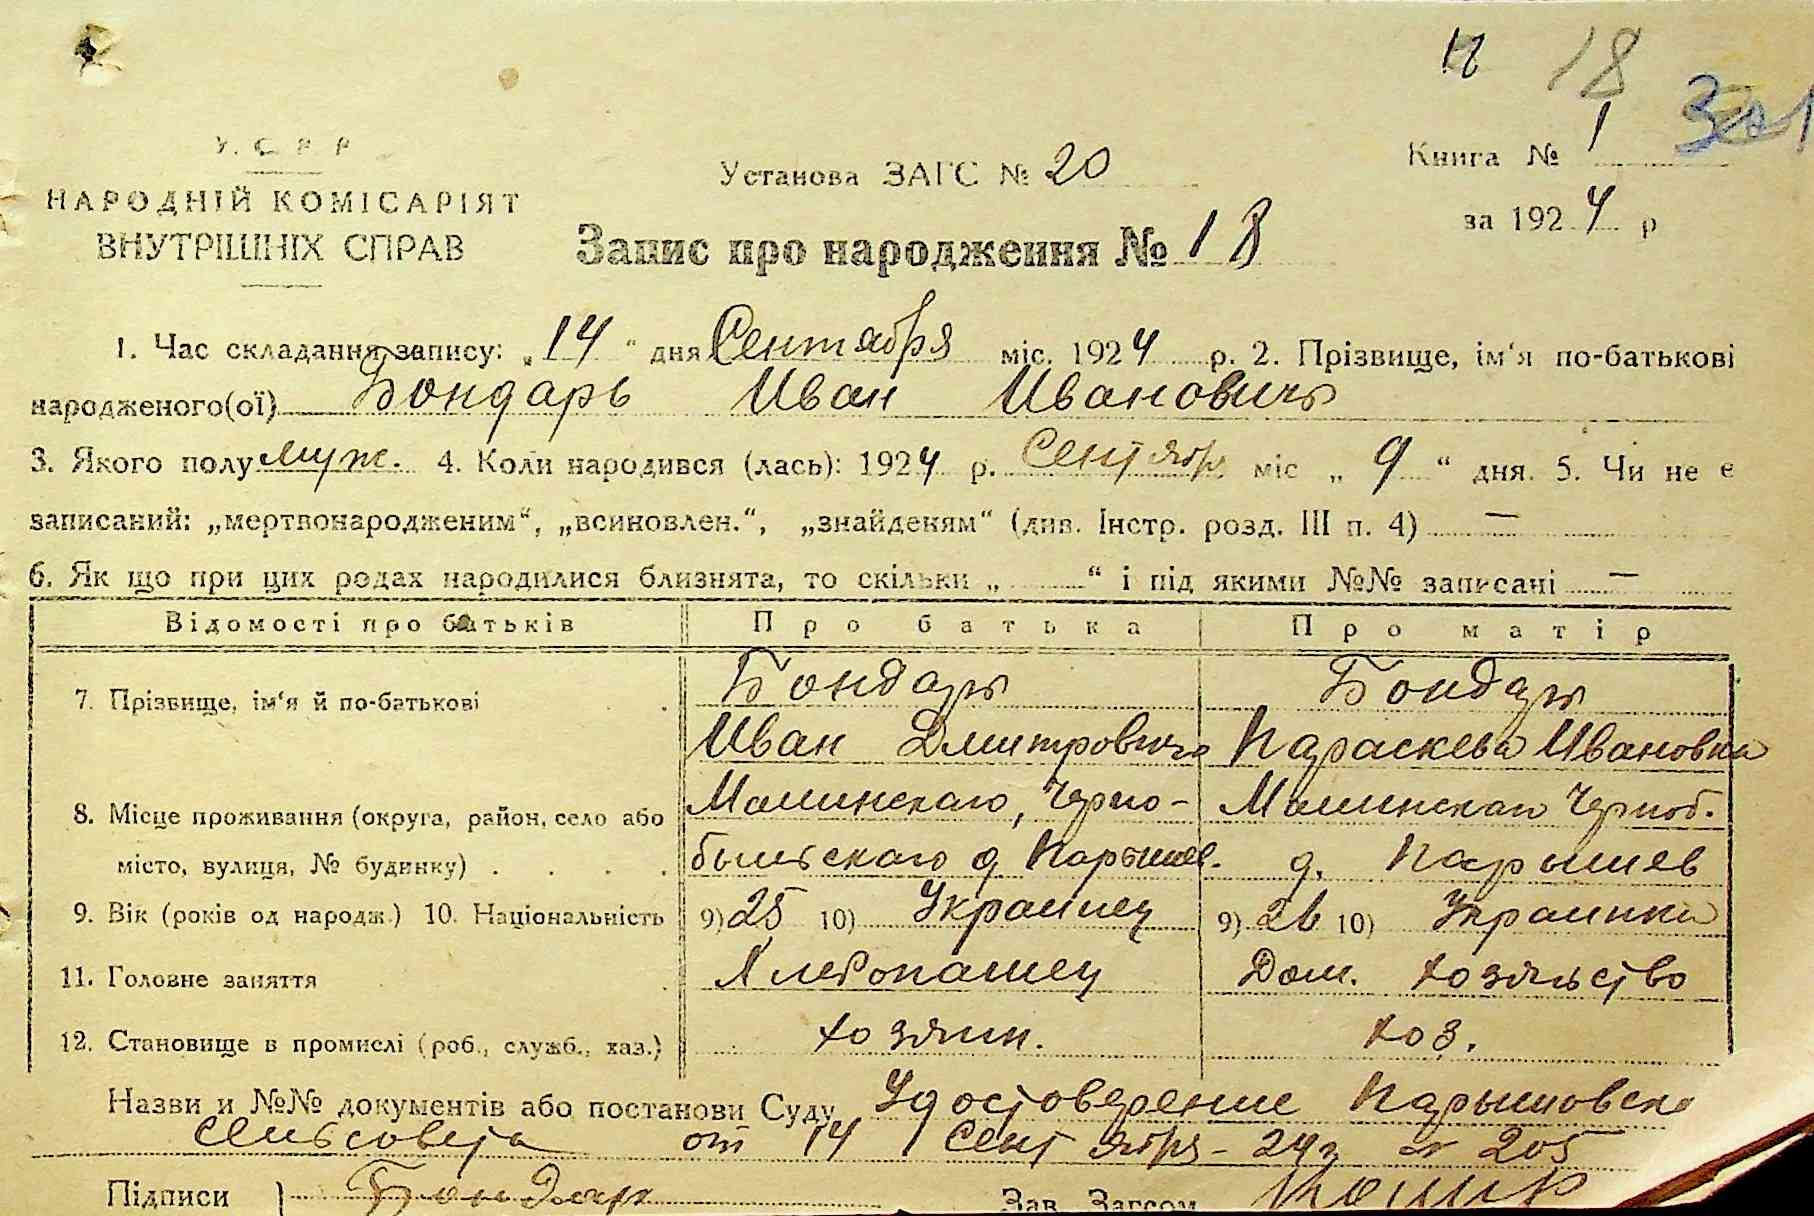 18
У.С.Р.Р.
НАРОДНІЙ КОМІСАРІЯТ
ВНУТРІШНІХ СПРАВ
Установа ЗАГС № 20
Книга № 1
за 1924 р
Запис про народження № 18
1. Час складання запису: „14“ дня Сентября міс. 1924 р. 2. Прізвище, ім‘я по-батькові
народженого(ої) Бондарь Иван Ивановичъ
3. Якого полу муж. 4. Коли народився (лась): 1924 р. Сентября міс „9“ дня. 5. Чи не є
записаний: „мертвонародженим“, „всиновлен.“, „знайденям“ (див. Інстр. розд. III п. 4) —
6. Як що при цих родах народилися близнята, то скільки „ “ і під якими №№ записані —
Відомості про батьків Про батька Про матір
7. Прізвище, ім‘я й по-батькові Бондарь Бондарь
Иван Дмитровичъ Параскева Ивановна
8. Місце проживання (округа, район, село або Малинскаго, Черно- Малинскаго Черноб.
місто, вулиця, № будинку) . . . . быльскаго д Парышев. д. Парышев
9. Вік (років од народж.) 10. Національність 9) 25 10) Украинец 9) 26 10) Украинка
11. Головне заняття Хлебопашец Дом. хозяйство
12. Становище в промислі (роб., служб., хаз.) хозяин. хоз.
Назви и №№ документів або постанови Суду Удостоверение Парышовско
сельсовета от 14 Сентября - 24 г № 205
Підписи } Бондар Зав. Загсом